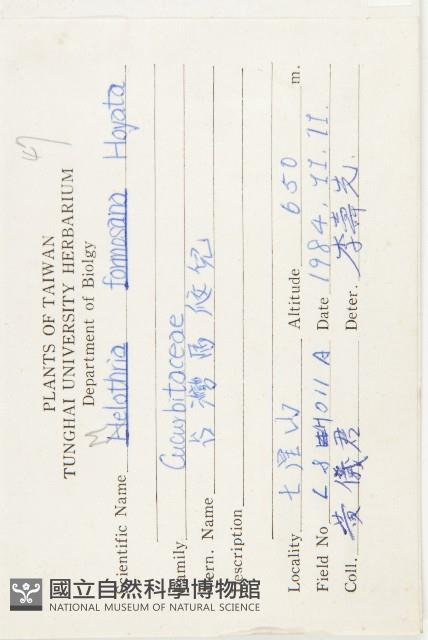 47
PLANTS OF TAIWAN
TUNGHAI UNIVERSITY HERBARIUM
Department of Biolgy
cientific Name Melothria formosana Hayata
amily Cucurbitaceae
ern. Name 台灣馬㼎兒
escription
Locality 七星山 Altitude 650 m.
Field No 011 A Date 1984, 11. 11.
Coll. 黃儀君 Deter. 李壽先.
國立自然科學博物館
NATIONAL MUSEUM OF NATURAL SCIENCE